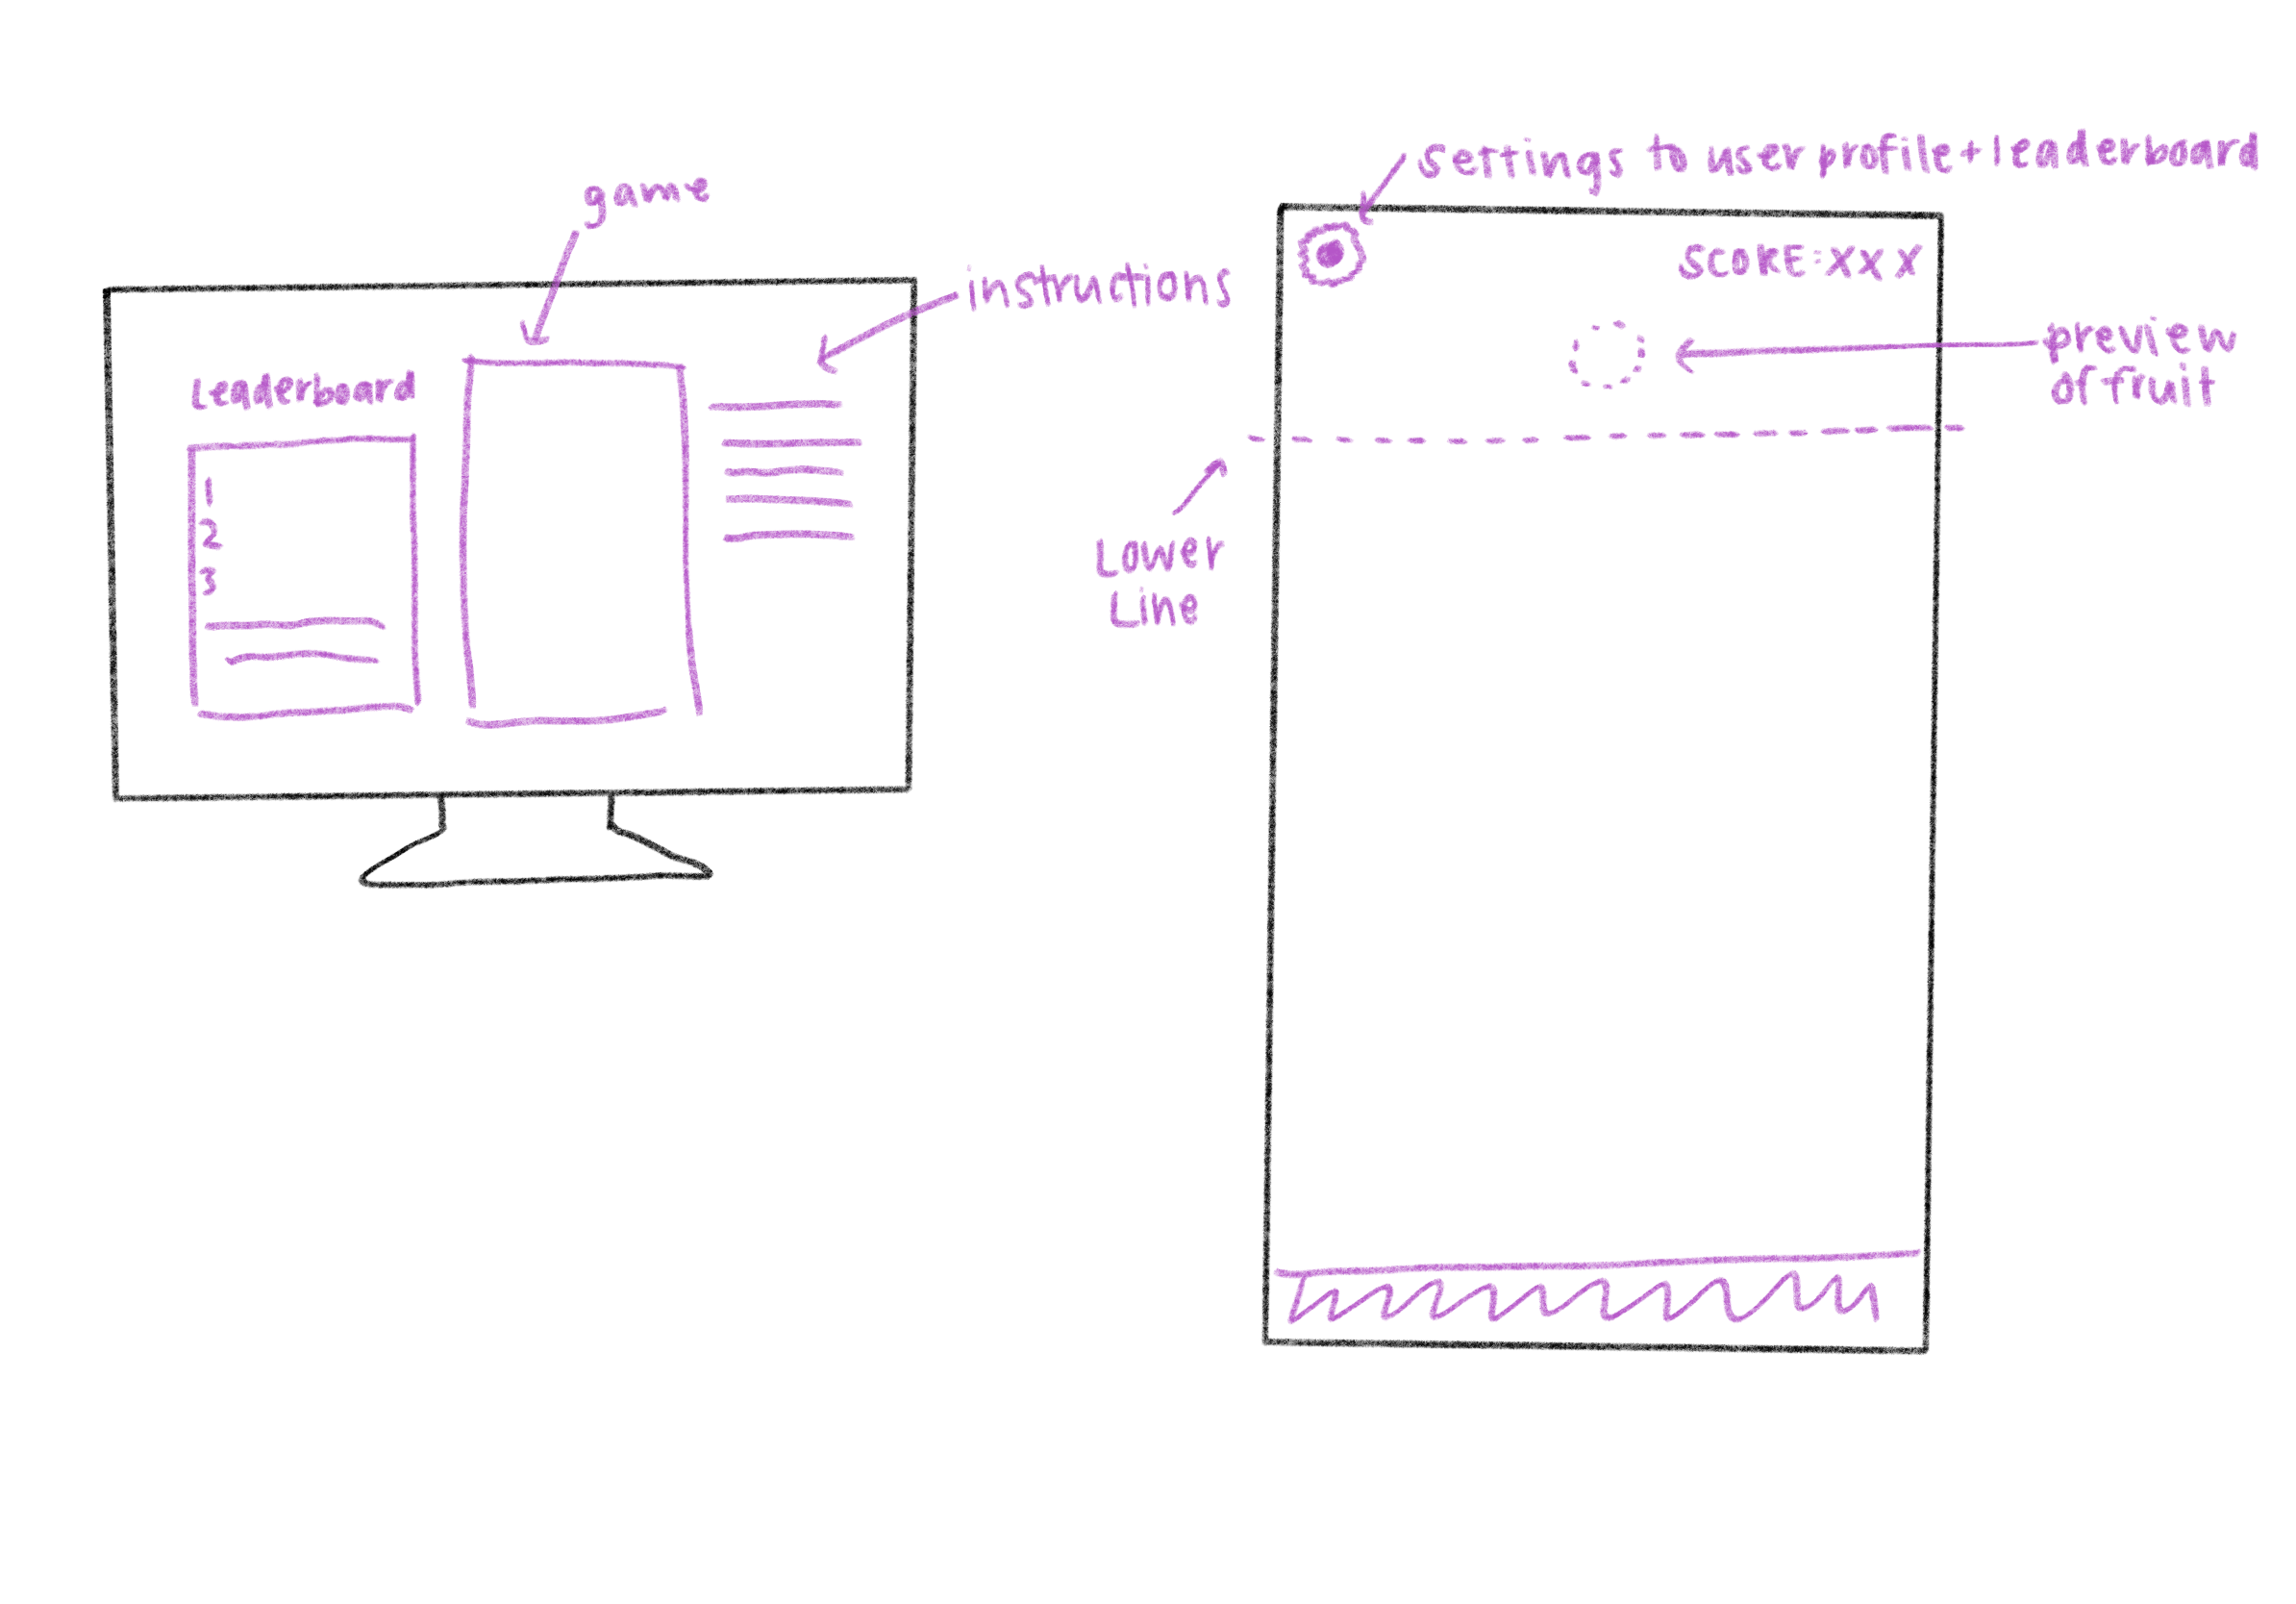 game
instructions
Leaderboard
1
2
3
settings to user profile + leaderboard
SCORE: XXX
preview
of fruit
Lower
Line